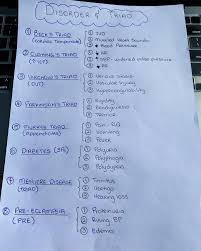 DISORDER & TRIAD
① BECK'S TRIAD
(CARDIAC TAMPONADE)
① JVD
② Muffled Heart Sounds
③ Blood Pressure
② CUSHING'S TRIAD
(↑ICP)
① ↓HR
② ↑BP
③ ↓RR
③ VIRCHOW'S TRIAD
① Venous Stasis
② Vascular Injury
③ Hypercoagulability
④ PARKINSON'S TRIAD
① Rigidity
② Bradykinesia
③ Tremor
⑤ MURPHY TRIAD
(APPENDICITIS)
① Pain
② Vomiting
③ Fever
⑥ DIABETES (3P'S)
① Polyuria
② Polyphagia
③ Polydipsia
⑦ MENIERE DISEASE
① Tinnitus
② Vertigo
③ Hearing loss
⑧ PRE-ECLAMPSIA
(PRE)
① Proteinuria
② Rising BP
③ Edema